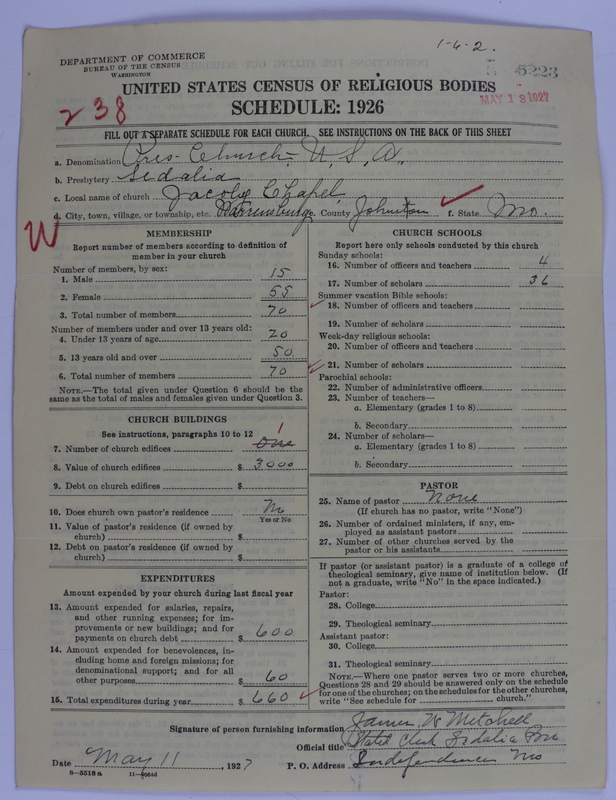 1-6-2.
DEPARTMENT OF COMMERCE
BUREAU OF THE CENSUS
WASHINGTON
5223
MAY 18 1927
UNITED STATES CENSUS OF RELIGIOUS BODIES
238
SCHEDULE: 1926
FILL OUT A SEPARATE SCHEDULE FOR EACH CHURCH. SEE INSTRUCTIONS ON THE BACK OF THIS SHEET
a. Denomination Pres. Church, U.S.A.
b. Presbytery Sedalia
c. Local name of church Jacoby Chapel
d. City, town, village, or township, etc. Warrensburg e. County Johnston f. State Mo.
W
MEMBERSHIP
Report number of members according to definition of
member in your church
Number of members, by sex:
1. Male 15
2. Female 55
3. Total number of members 70
Number of members under and over 13 years old:
4. Under 13 years of age 20
5. 13 years old and over 50
6. Total number of members 70
NOTE.—The total given under Question 6 should be the
same as the total of males and females given under Question 3.
CHURCH BUILDINGS
See instructions, paragraphs 10 to 12
1
7. Number of church edifices One
8. Value of church edifices $ 3000
9. Debt on church edifices $
10. Does church own pastor's residence No
Yes or No
11. Value of pastor's residence (if owned by
church) $
12. Debt on pastor's residence (if owned by
church) $
EXPENDITURES
Amount expended by your church during last fiscal year
13. Amount expended for salaries, repairs,
and other running expenses; for im-
provements or new buildings; and for
payments on church debt $ 600
14. Amount expended for benevolences, in-
cluding home and foreign missions; for
denominational support; and for all
other purposes $ 60
15. Total expenditures during year $ 660
CHURCH SCHOOLS
Report here only schools conducted by this church
Sunday schools:
16. Number of officers and teachers 4
17. Number of scholars 36
Summer vacation Bible schools:
18. Number of officers and teachers
19. Number of scholars
Week-day religious schools:
20. Number of officers and teachers
21. Number of scholars
Parochial schools:
22. Number of administrative officers
23. Number of teachers—
a. Elementary (grades 1 to 8)
b. Secondary
24. Number of scholars—
a. Elementary (grades 1 to 8)
b. Secondary
PASTOR
25. Name of pastor None
(If church has no pastor, write "None")
26. Number of ordained ministers, if any, em-
ployed as assistant pastors
27. Number of other churches served by the
pastor or his assistants
If pastor (or assistant pastor) is a graduate of a college or
theological seminary, give name of institution below. (If
not a graduate, write "No" in the space indicated.)
Pastor:
28. College
29. Theological seminary
Assistant pastor:
30. College
31. Theological seminary
NOTE.—Where one pastor serves two or more churches,
Questions 28 and 29 should be answered only on the schedule
for one of the churches; on the schedules for the other churches,
write "See schedule for church."
Signature of person furnishing information James W Mitchell
Official title Stated Clerk Sedalia Pres
Date May 11, 1927 P. O. Address Independence Mo
8—5518 a